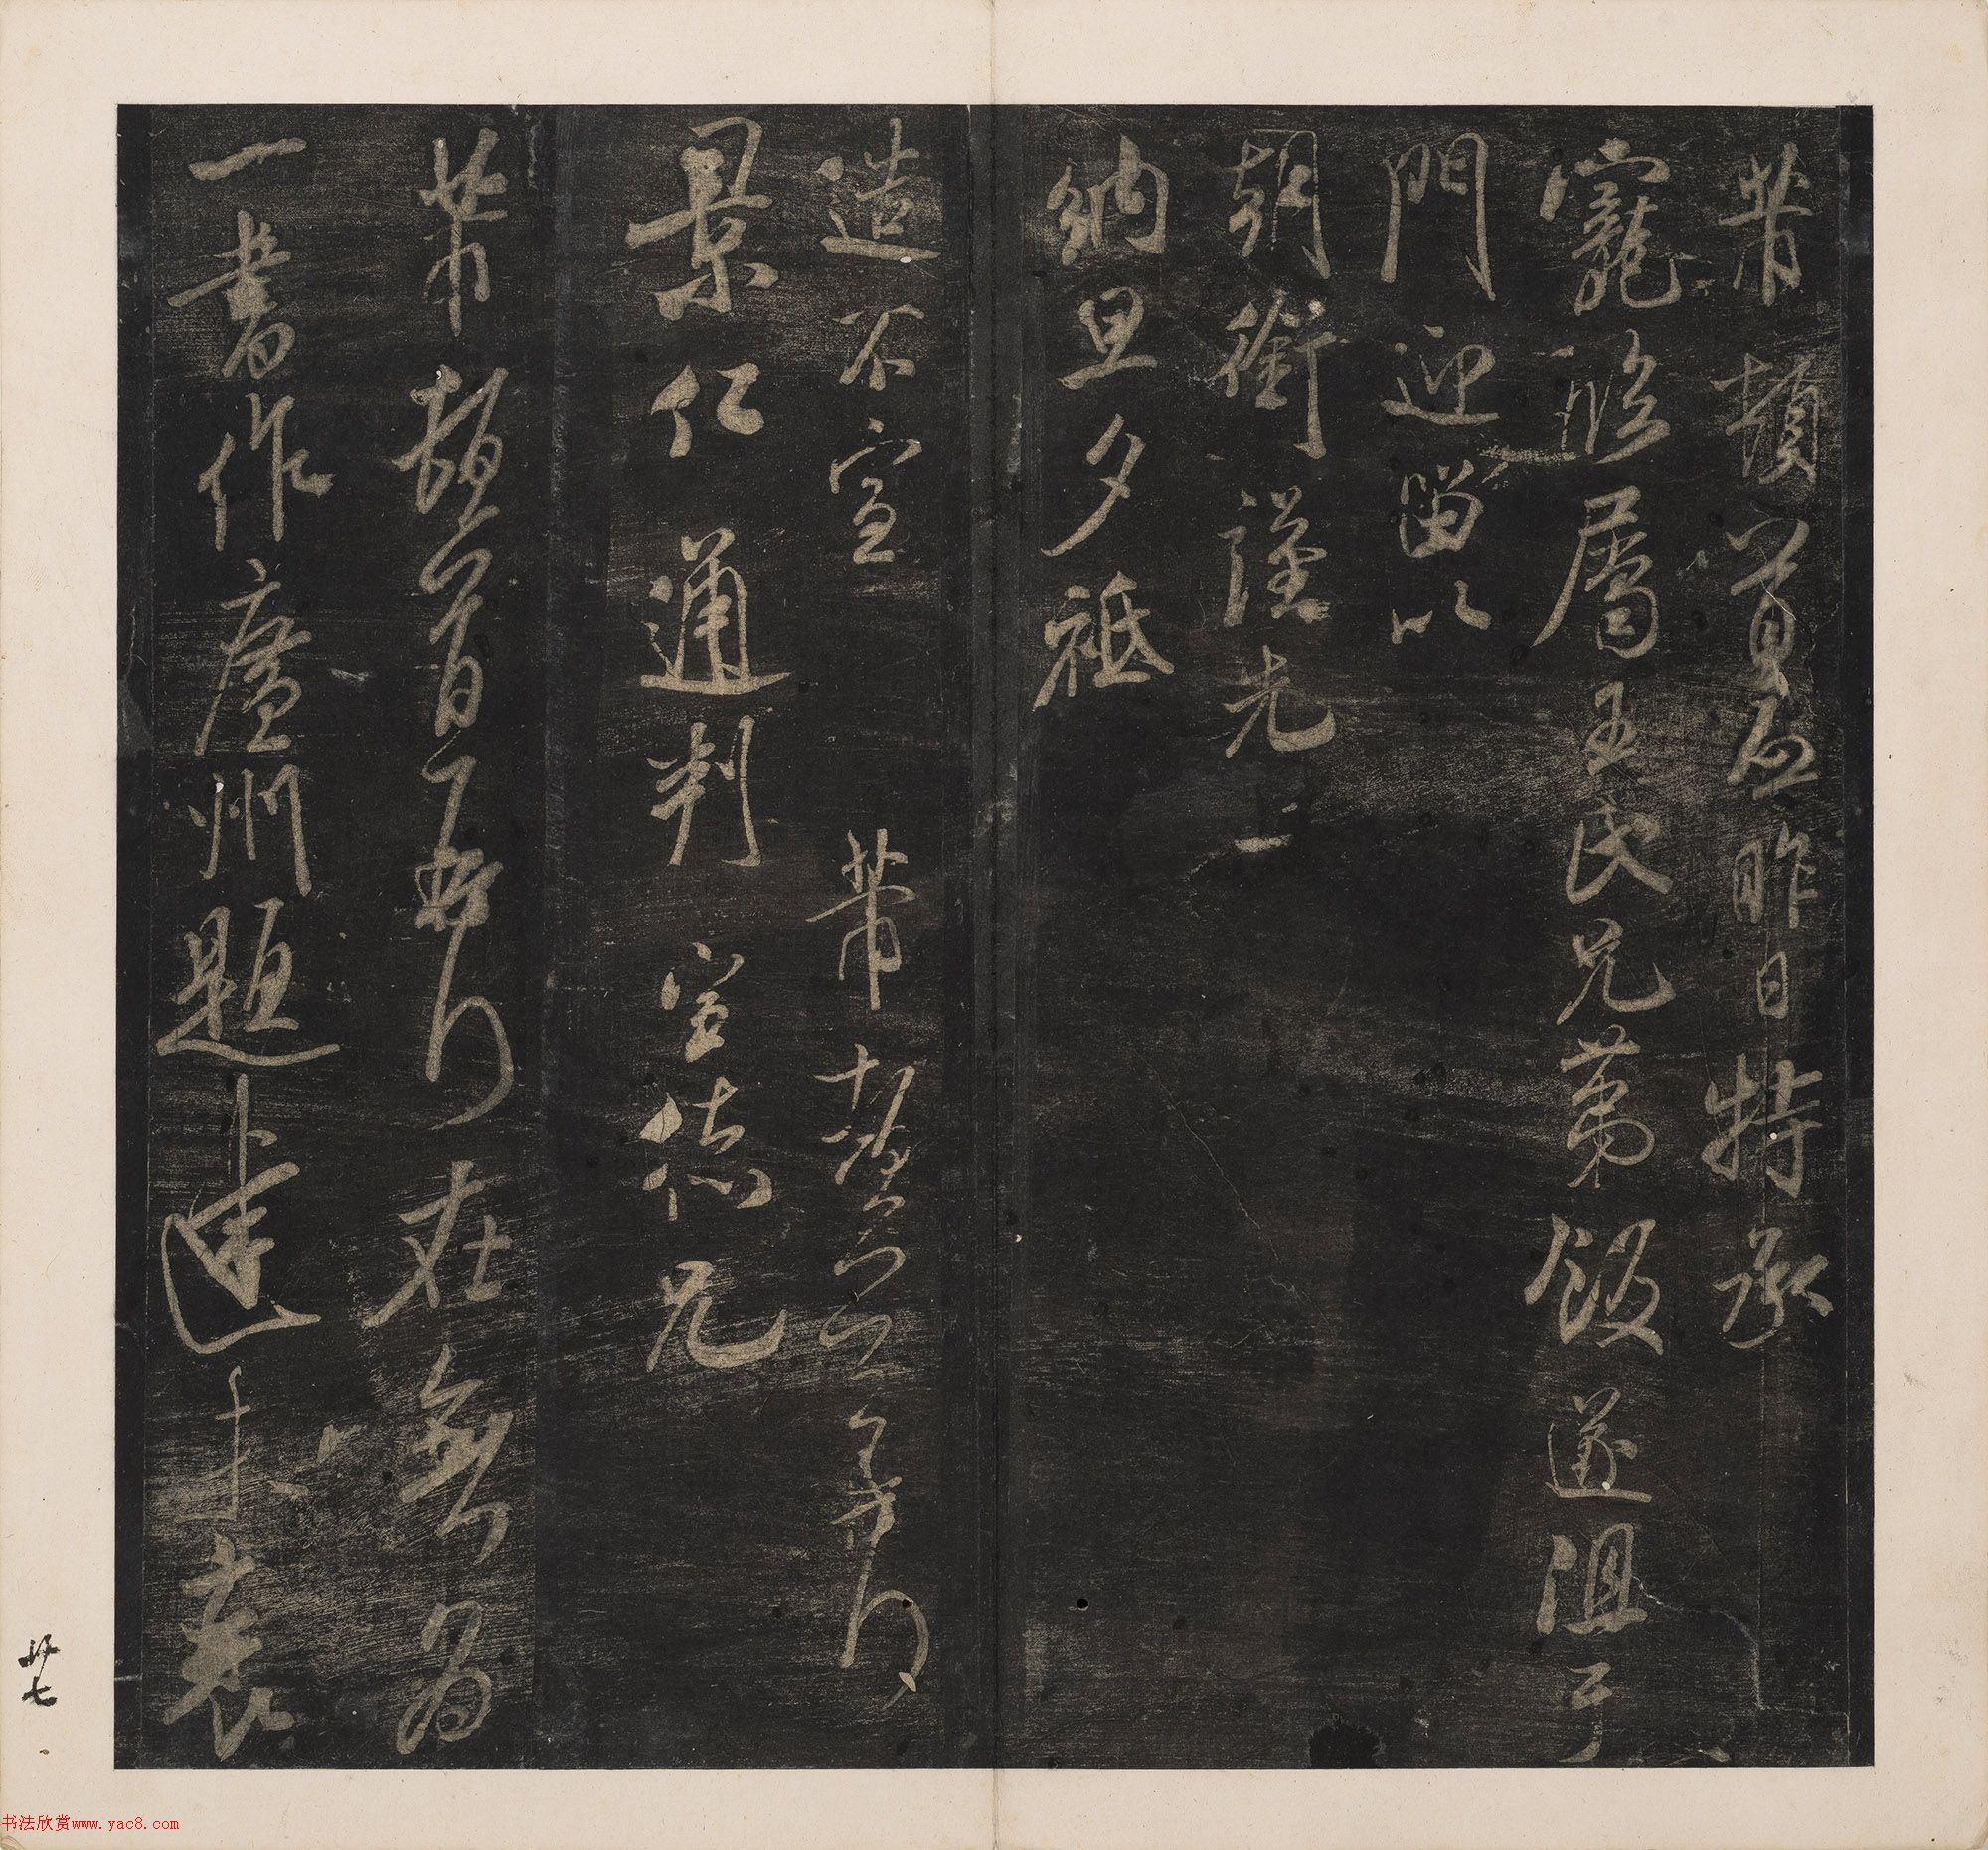 芾頓首啓昨日特承
寵臨屬王氏兄弟飯遂阻于
門迎留以
朝銜謹先
納旦夕祗
造不宣 芾頓首
景仁通判宣德兄
芾頓首再行在無為
一書作廬州題達十袁
廿七
书法欣赏www.yac8.com